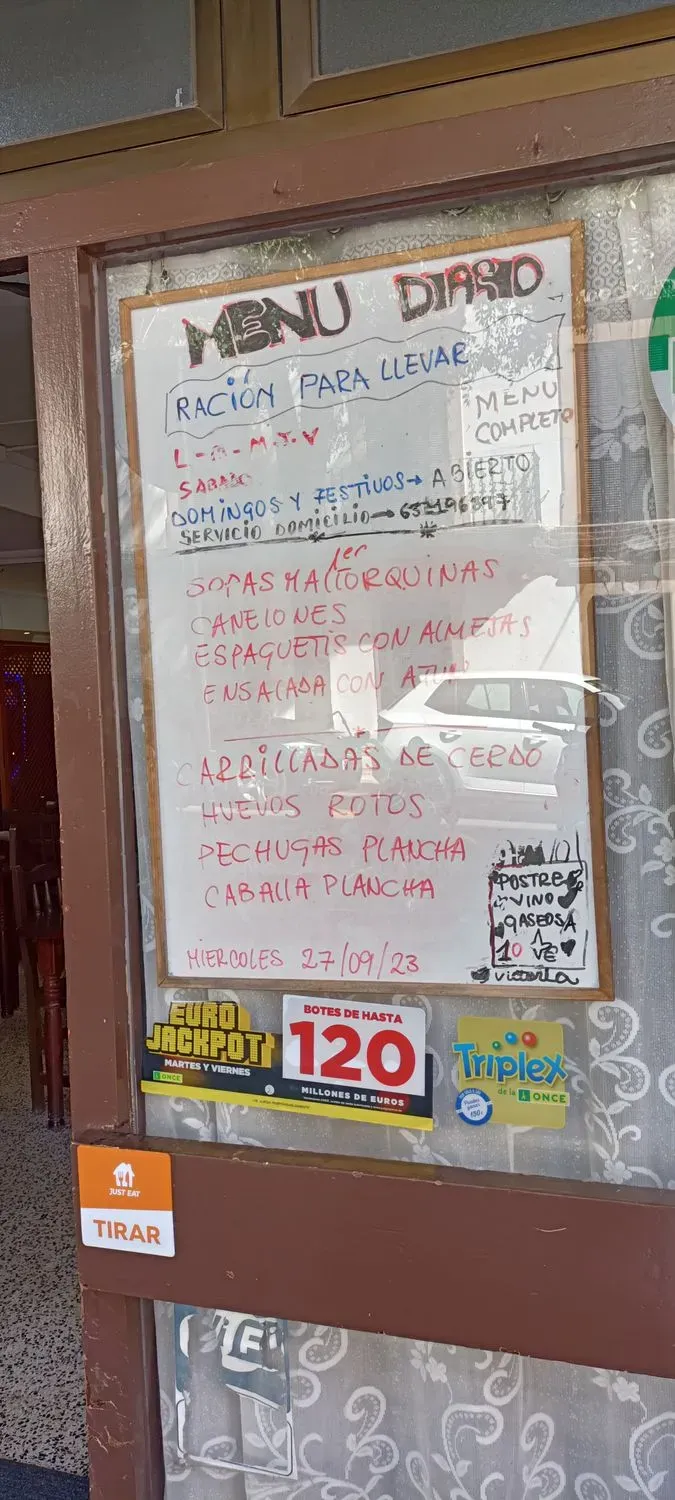 MENU DIARIO
RACIÓN PARA LLEVAR
MENU
COMPLETO
L - M - M - J - V
SABADO
DOMINGOS Y FESTIVOS → ABIERTO
SERVICIO DOMICILIO →
1er
SOPAS MALLORQUINAS
CANELONES
ESPAGUETIS CON ALMEJAS
ENSALADA CON ATUN
CARRILLADAS DE CERDO
HUEVOS ROTOS
PECHUGAS PLANCHA
CABALLA PLANCHA
POSTRE
VINO
GASEOSA
10
MIERCOLES 27/09/23
EURO
JACKPOT
MARTES Y VIERNES
ONCE
BOTES DE HASTA
120
MILLONES DE EUROS
Triplex
de la ONCE
JUST EAT
TIRAR